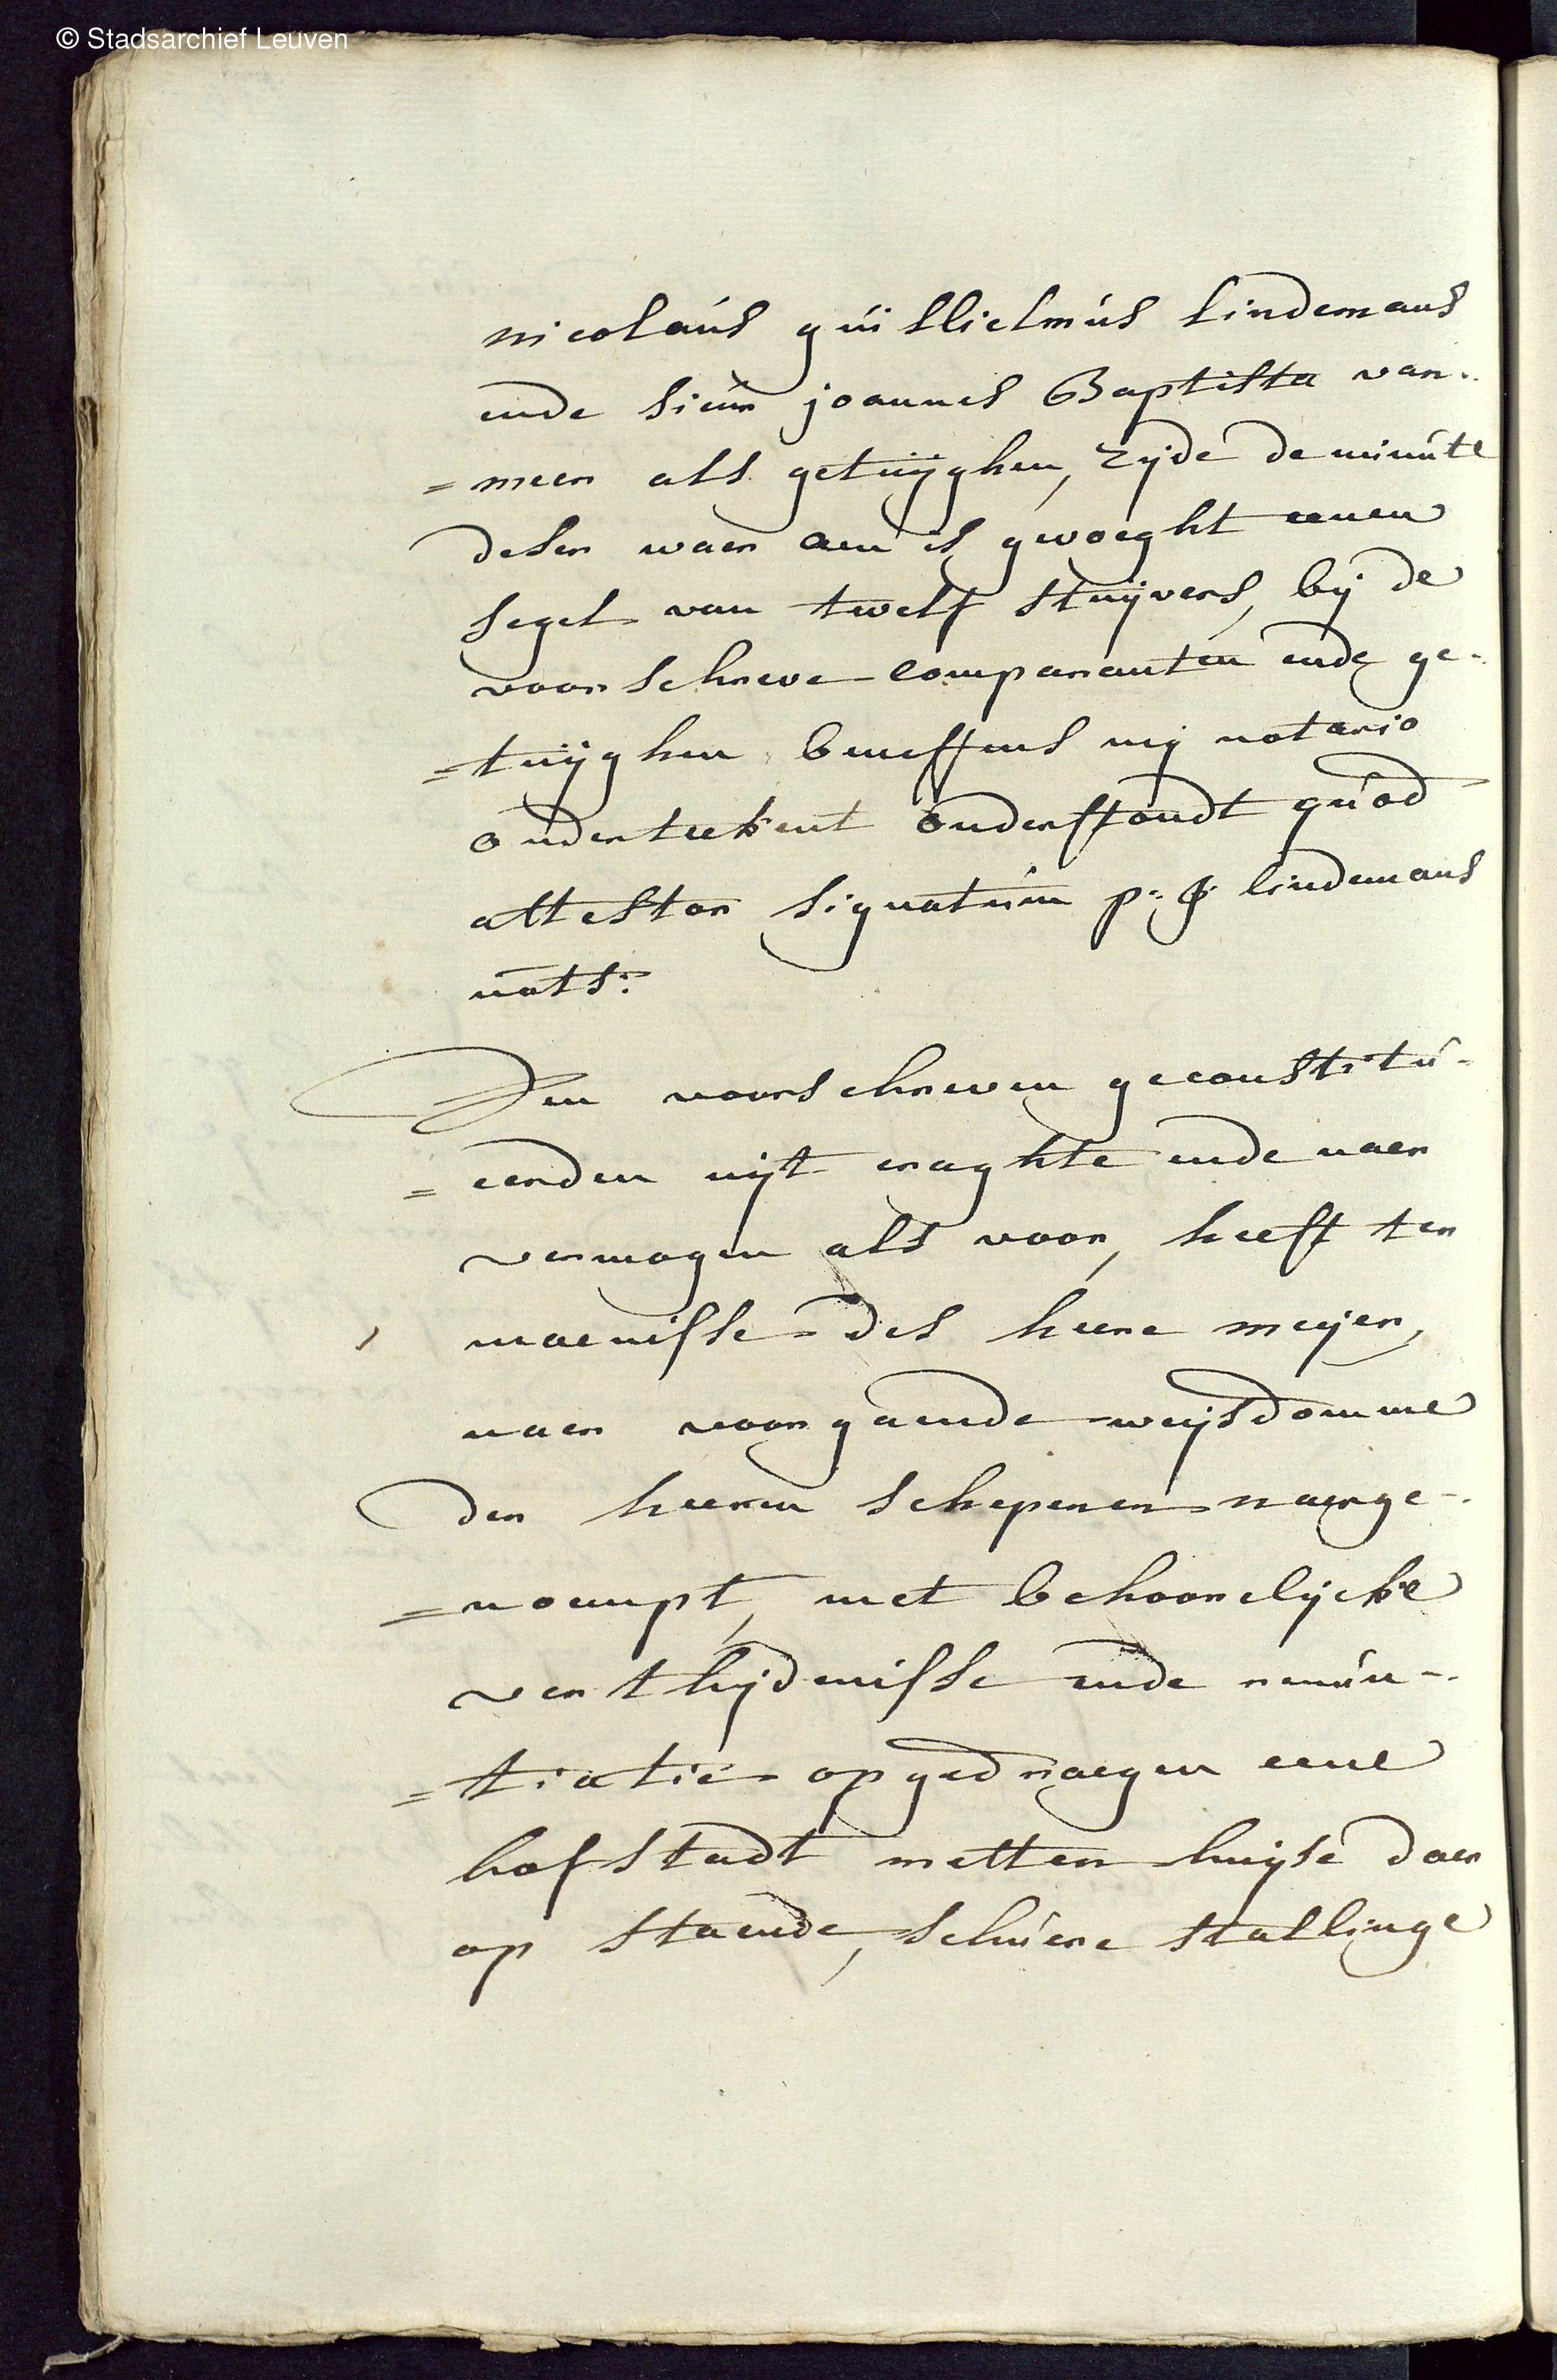 © Stadsarchief Leuven
nicolaús gúilliclmús lindemans
ende sieúr joannes Baptista van-
=meer als getúÿghen, zÿde de minúte
deser waer aen is gevoeght eenen
segel van twelf stúÿvers, bÿ de
voorschreve comparanten ende ge-
=túÿghen beneffens mÿ notario
onderteekent onderstondt qúod
attestor signatúm p: J: lindemans
nots:
Den voorschreven geconstitú-
=eerden úÿt craghte ende naer
vermogen als voor, heeft ter
maenisse des heere meÿer,
naer voorgaende weÿsdomme
der heeren schepenen naerge-
=noempt, met behoorelÿcke
verthÿdenisse ende renún-
=tiatie opgedraegen eene
hofstadt metten húÿse daer
op staende, schúere stallinge